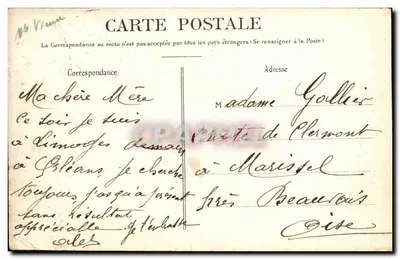 CARTE POSTALE
La Correspondance au recto n'est pas acceptée par tous les pays étrangers (Se renseigner à la Poste)
Correspondance
Adresse
Ma chère Mère
Ce soir je suis
à Limoges demain
à Orléans je cherche
toujours jusqu'à présent
sans résultat
appréciable. Je t'embrasse
Madame Gallier
Route de Clermont
à Marissel
près Beauvais
Oise